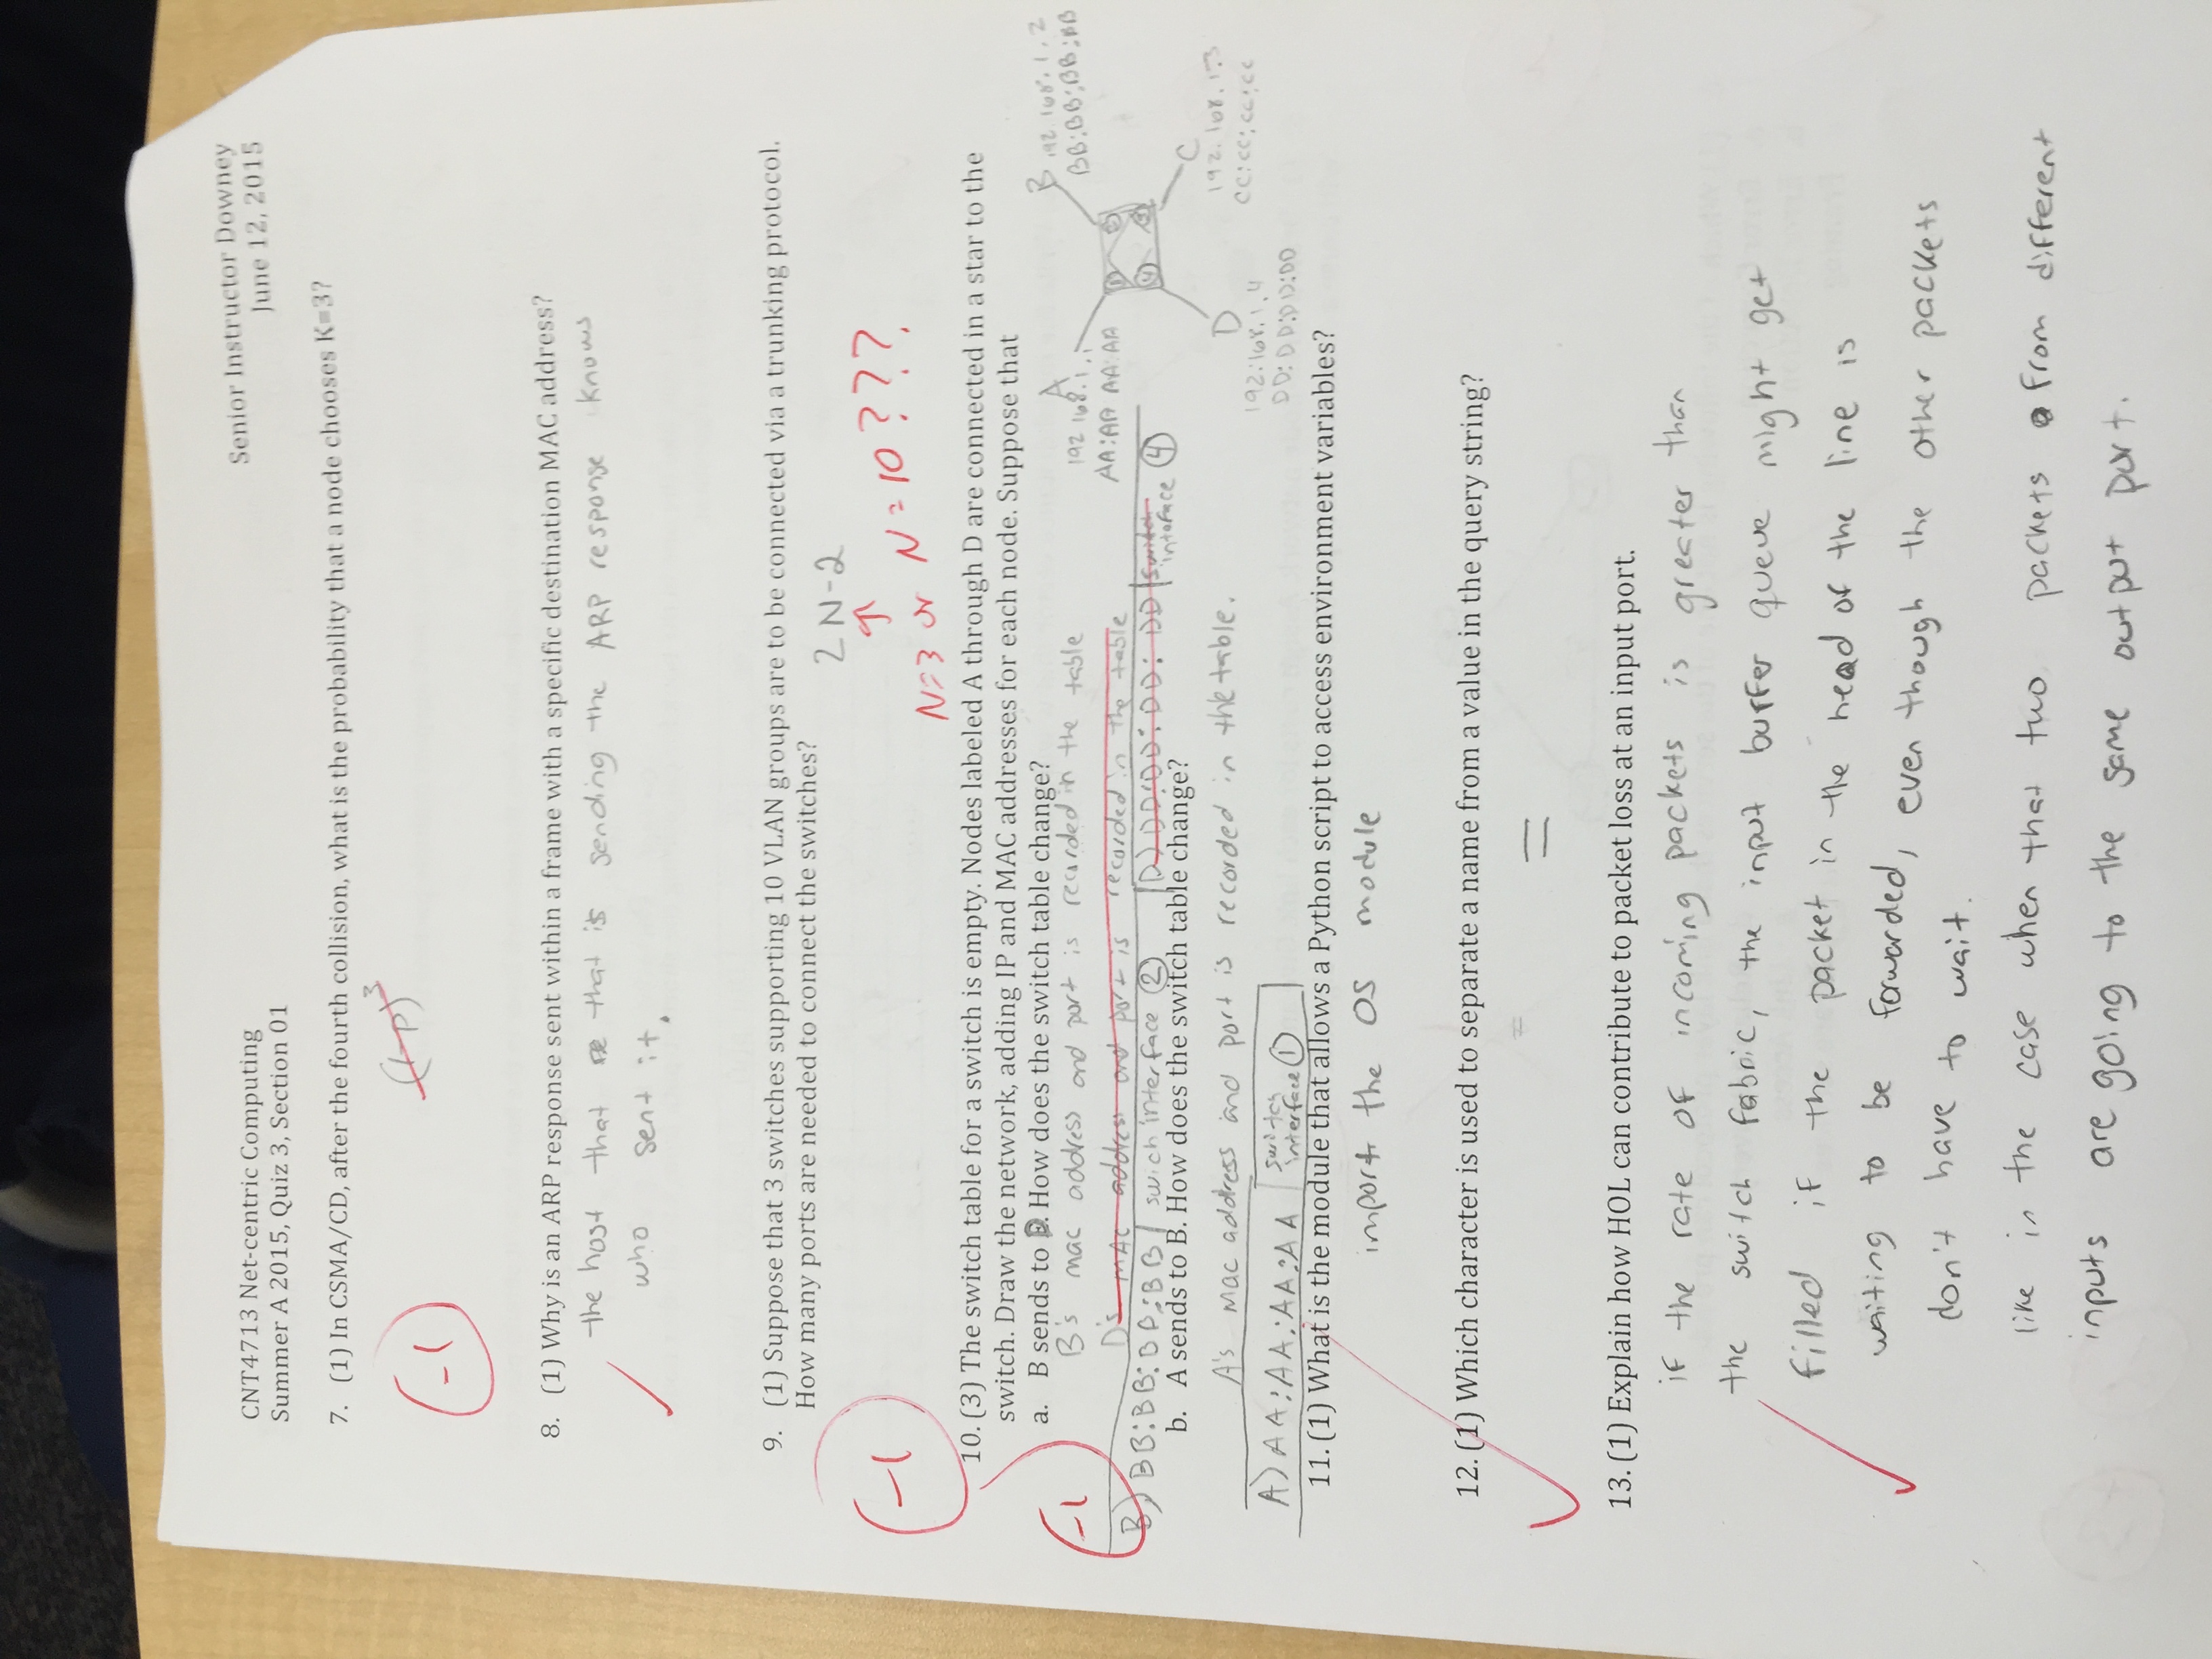 CNT4713 Net-centric Computing
Senior Instructor Downey
Summer A 2015, Quiz 3, Section 01
June 12, 2015
7. (1) In CSMA/CD, after the fourth collision, what is the probability that a node chooses K=3?
(1-p)³
-1
8. (1) Why is an ARP response sent within a frame with a specific destination MAC address?
the host that is sending the ARP response knows
who sent it.
9. (1) Suppose that 3 switches supporting 10 VLAN groups are to be connected via a trunking protocol.
How many ports are needed to connect the switches?
2N-2
N=3 or N=10???.
-1
10. (3) The switch table for a switch is empty. Nodes labeled A through D are connected in a star to the
switch. Draw the network, adding IP and MAC addresses for each node. Suppose that
a. B sends to D. How does the switch table change?
B's mac address and port is recorded in the table
D's MAC address and port is recorded in the table
B) BB:BB:BB:BB | swich interface ②
D) DD:DD:DD:DD | switch interface ④
-1
A
192.168.1.1
AA:AA AA:AA
B
192.168.1.2
BB:BB:BB:BB
C
192.168.1.3
CC:CC:CC:CC
D
192.168.1.4
DD:DD:DD:DD
b. A sends to B. How does the switch table change?
A's mac address and port is recorded in the table.
A) AA:AA:AA:AA | switch interface ①
11. (1) What is the module that allows a Python script to access environment variables?
import the OS module
12. (1) Which character is used to separate a name from a value in the query string?
=
13. (1) Explain how HOL can contribute to packet loss at an input port.
if the rate of incoming packets is greater than
the switch fabric, the input buffer queue might get
filled if the packet in the head of the line is
waiting to be forwarded, even though the other packets
don't have to wait.
like in the case when that two packets from different
inputs are going to the same output port.